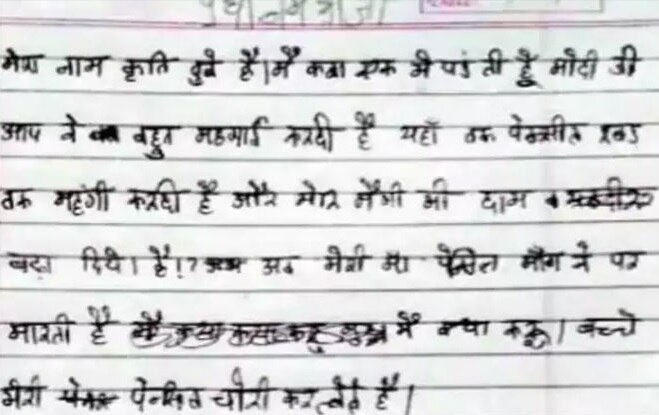 प्रधानमंत्री जी
मेरा नाम कृति दुबे है। मैं कक्षा एक मे पढं ती हूँ मोदी जी
आप ने बहुत महगाई करदी है यहाँ तक पेन्सील रबड
तक महंगी करदी है और मेरे मैगी की दाम
बढ़ा दिये। है।? अब मेरी माँ पेन्सिल माँग ने पर
मारती है मैं क्या करू। बच्चे
मेरी पेन्सिल चोरी कर लेते है।